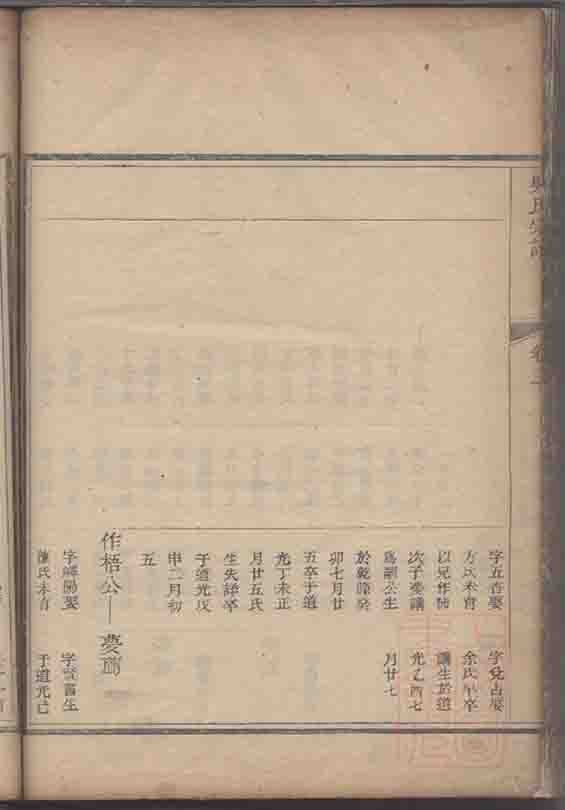 吳氏宗譜
卷
字五香娶
方氏未育
以兄作楠
次子夢讓
為嗣公生
於乾隆癸
卯七月廿
五卒于道
光丁未正
月廿五氏
生失詳卒
于道光戊
申二月初
五
字兌占娶
余氏早卒
讓生於道
光乙酉七
月廿七
作梧公 夢薦
字嶧陽娶
陳氏未育
字賢書生
于道光己